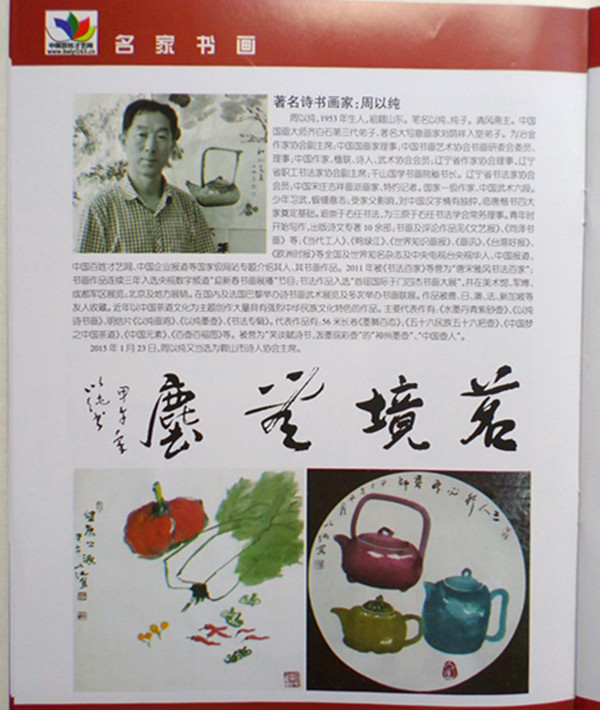 中国百姓才艺网
www.baiyi163.cn
名家书画
著名诗书画家：周以纯
周以纯，1953年生人，祖籍山东。笔名以纯、纯子。清风斋主。中国
国画大师齐白石第三代弟子、著名大写意画家刘荫祥入室弟子。为冶金
作家协会副主席。中国国画家理事，中国书画艺术协会书画研委会委员、
理事；中国作家、楹联、诗人、武术协会会员；辽宁省作家协会理事，辽宁
省职工书法家协会副主席，千山国学书画院秘书长。辽宁省书法家协会
会员；中国宋庄吉祥画派画家，特约记者。国家一级作家、中国武术六段。
少年习武，锻锤意志；受家父影响，对中国汉字情有独钟，临唐楷书四大
家奠定基础。后崇于右任书法，为三原于右任书法学会常务理事。青年时
开始写作，出版诗文专著10余部；书画及评论作品见《文艺报》、《菏泽书
画》等；《当代工人》、《鸭绿江》、《世界知识画报》、《画讯》、《台港好报》、
《欧洲时报》等全国及世界知名杂志及中央电视台央视华人、中国报道、
中国百姓才艺网、中国企业报道等国家级网站专题介绍其人、其书画作品。2011年被《书法百家》等誉为“唐宋雅风书法百家”；
书画作品连续三年入选央视数字频道“迎新春书画展播”节目；书法作品入选“首届国际于门百杰书画大展”，并在美术馆、军博、
成都军区展览；北京及地方展销。在国内及法国巴黎举办诗书画武术展览及多次举办书画联展。作品被德、日、潞、法、新加坡等
友人收藏。近年以中国茶道文化为主题创作大量具有强烈中华民族文化特色的作品。主要代表作有：《水墨丹青紫砂壶》、《以纯
诗书画》、明信片《以纯画鸡》、《以纯墨壶》、《书法专辑》。代表作品有：56米长卷《墨舞百态》、《五十六民族五十六把壶》、《中国梦
之中国茶道》、《中国元素》、《百壶百福图》等。被誉为“笑谈赋诗书，泼墨绽彩壶”的“神州墨壶”、“中国壶人”。
2015年1月23日，周以纯又当选为鞍山市诗人协会主席。
茗境无尘
甲午年
以纯书
三人行必有我师